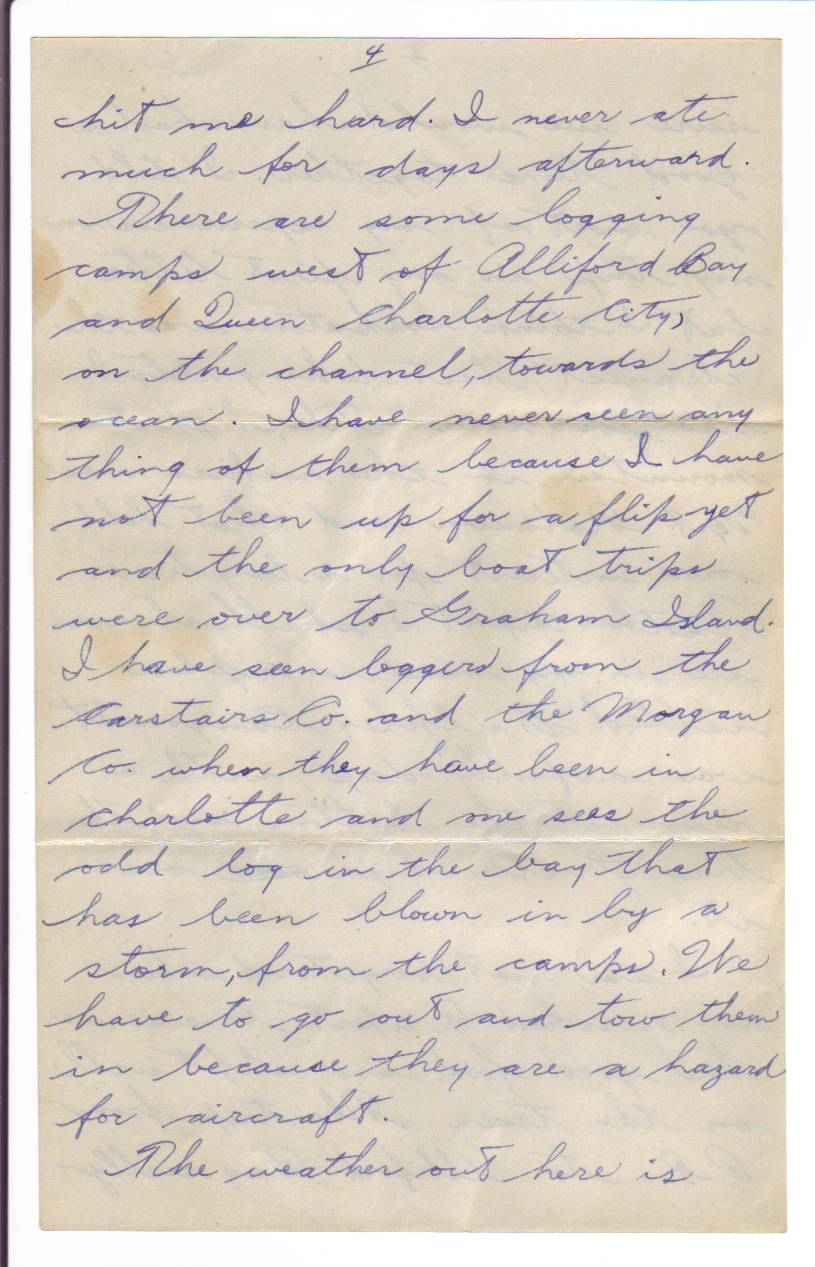 4
hit me hard. I never ate
much for days afterward.
There are some logging
camps west of Alliford Bay
and Queen Charlotte City,
on the channel, towards the
ocean. I have never seen any
thing of them because I have
not been up for a flip yet
and the only boat trips
were over to Graham Island.
I have seen loggers from the
Carstairs Co. and the Morgan
Co. when they have been in
Charlotte and one sees the
odd log in the bay that
has been blown in by a
storm, from the camps. We
have to go out and tow them
in because they are a hazard
for aircraft.
The weather out here is